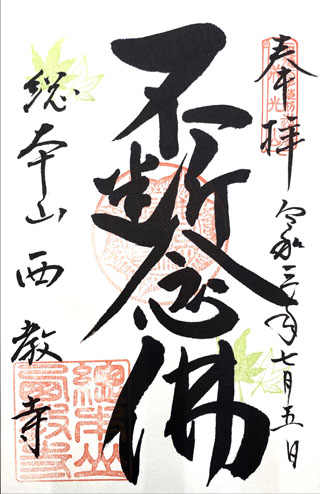 奉拝
令和三年七月五日
不断念佛
総本山西教寺